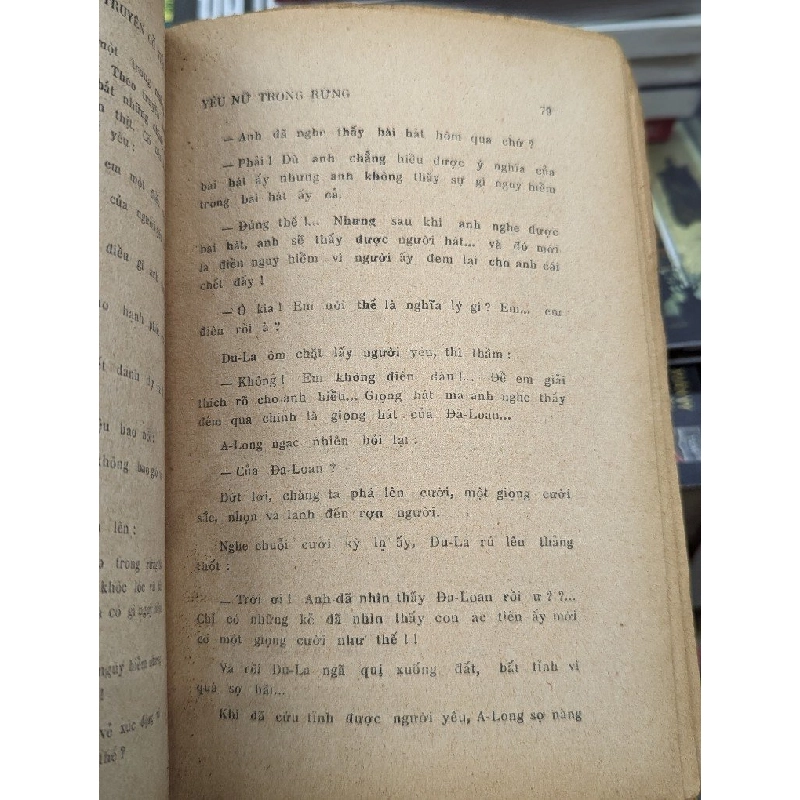 TRUYỆN
một
Theo
bắt những
yêu :
em một
của
điều gì anh
hạnh
danh dự
bao
không
lên :
trong
khóc lóc và
có gì nguy
nguy hiểm
!
vẻ xúc động
thế ?
YÊU NỮ TRONG RỪNG
79
— Anh đã nghe thấy bài hát hôm qua chớ ?
— Phải ! Dù anh chẳng hiểu được ý nghĩa của
bài hát ấy nhưng anh không thấy sự gì nguy hiểm
trong bài hát ấy cả.
— Đúng thế !... Nhưng sau khi anh nghe được
bài hát, anh sẽ thấy được người hát... và đó mới
là điều nguy hiểm vì người ấy đem lại cho anh cái
chết đấy !
— Ô kìa ! Em nói thế là nghĩa lý gì ? Em... em
điên rồi à ?
Du-La ôm chặt lấy người yêu, thì thầm :
— Không ! Em không điên đâu !... Để em giải
thích rõ cho anh hiểu... Giọng hát mà anh nghe thấy
đêm qua chính là giọng hát của Đa-Loan...
A-Long ngạc nhiên hỏi lại :
— Của Đa-Loan ?
Dứt lời, chàng ta phá lên cười, một giọng cười
sắc, nhọn và lanh đến rợn người.
Nghe chuỗi cười kỳ lạ ấy, Du-La rú lên thảng
thốt :
— Trời ơi ! Anh đã nhìn thấy Đa-Loan rồi ư ? ?...
Chỉ có những kẻ đã nhìn thấy con ác tiên ấy mới
có một giọng cười như thế ! !
Và rồi Du-La ngã quị xuống đất, bất tỉnh vì
quá sợ hãi...
Khi đã cứu tỉnh được người yêu, A-Long sợ nàng